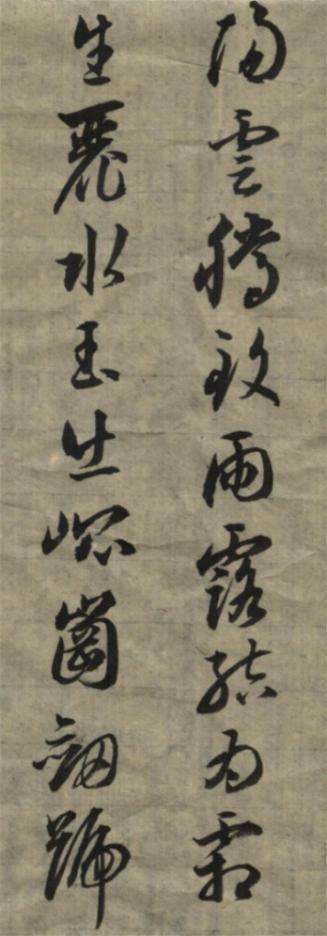 陽雲騰致雨露結為霜
生麗水玉出崐崗劒號